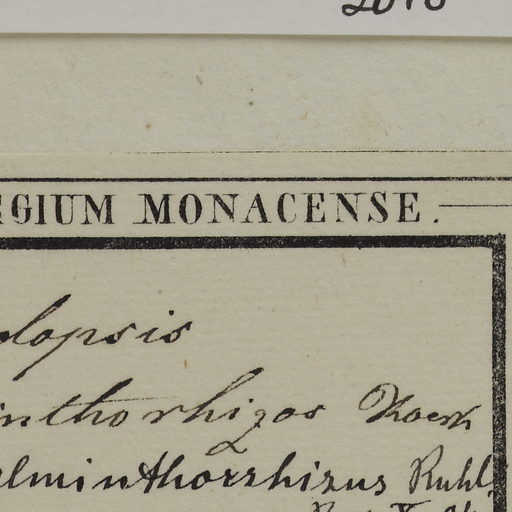 2018
GIUM MONACENSE.
lopsis
inthorhizos Koern
elminthorrhizus Ruhl